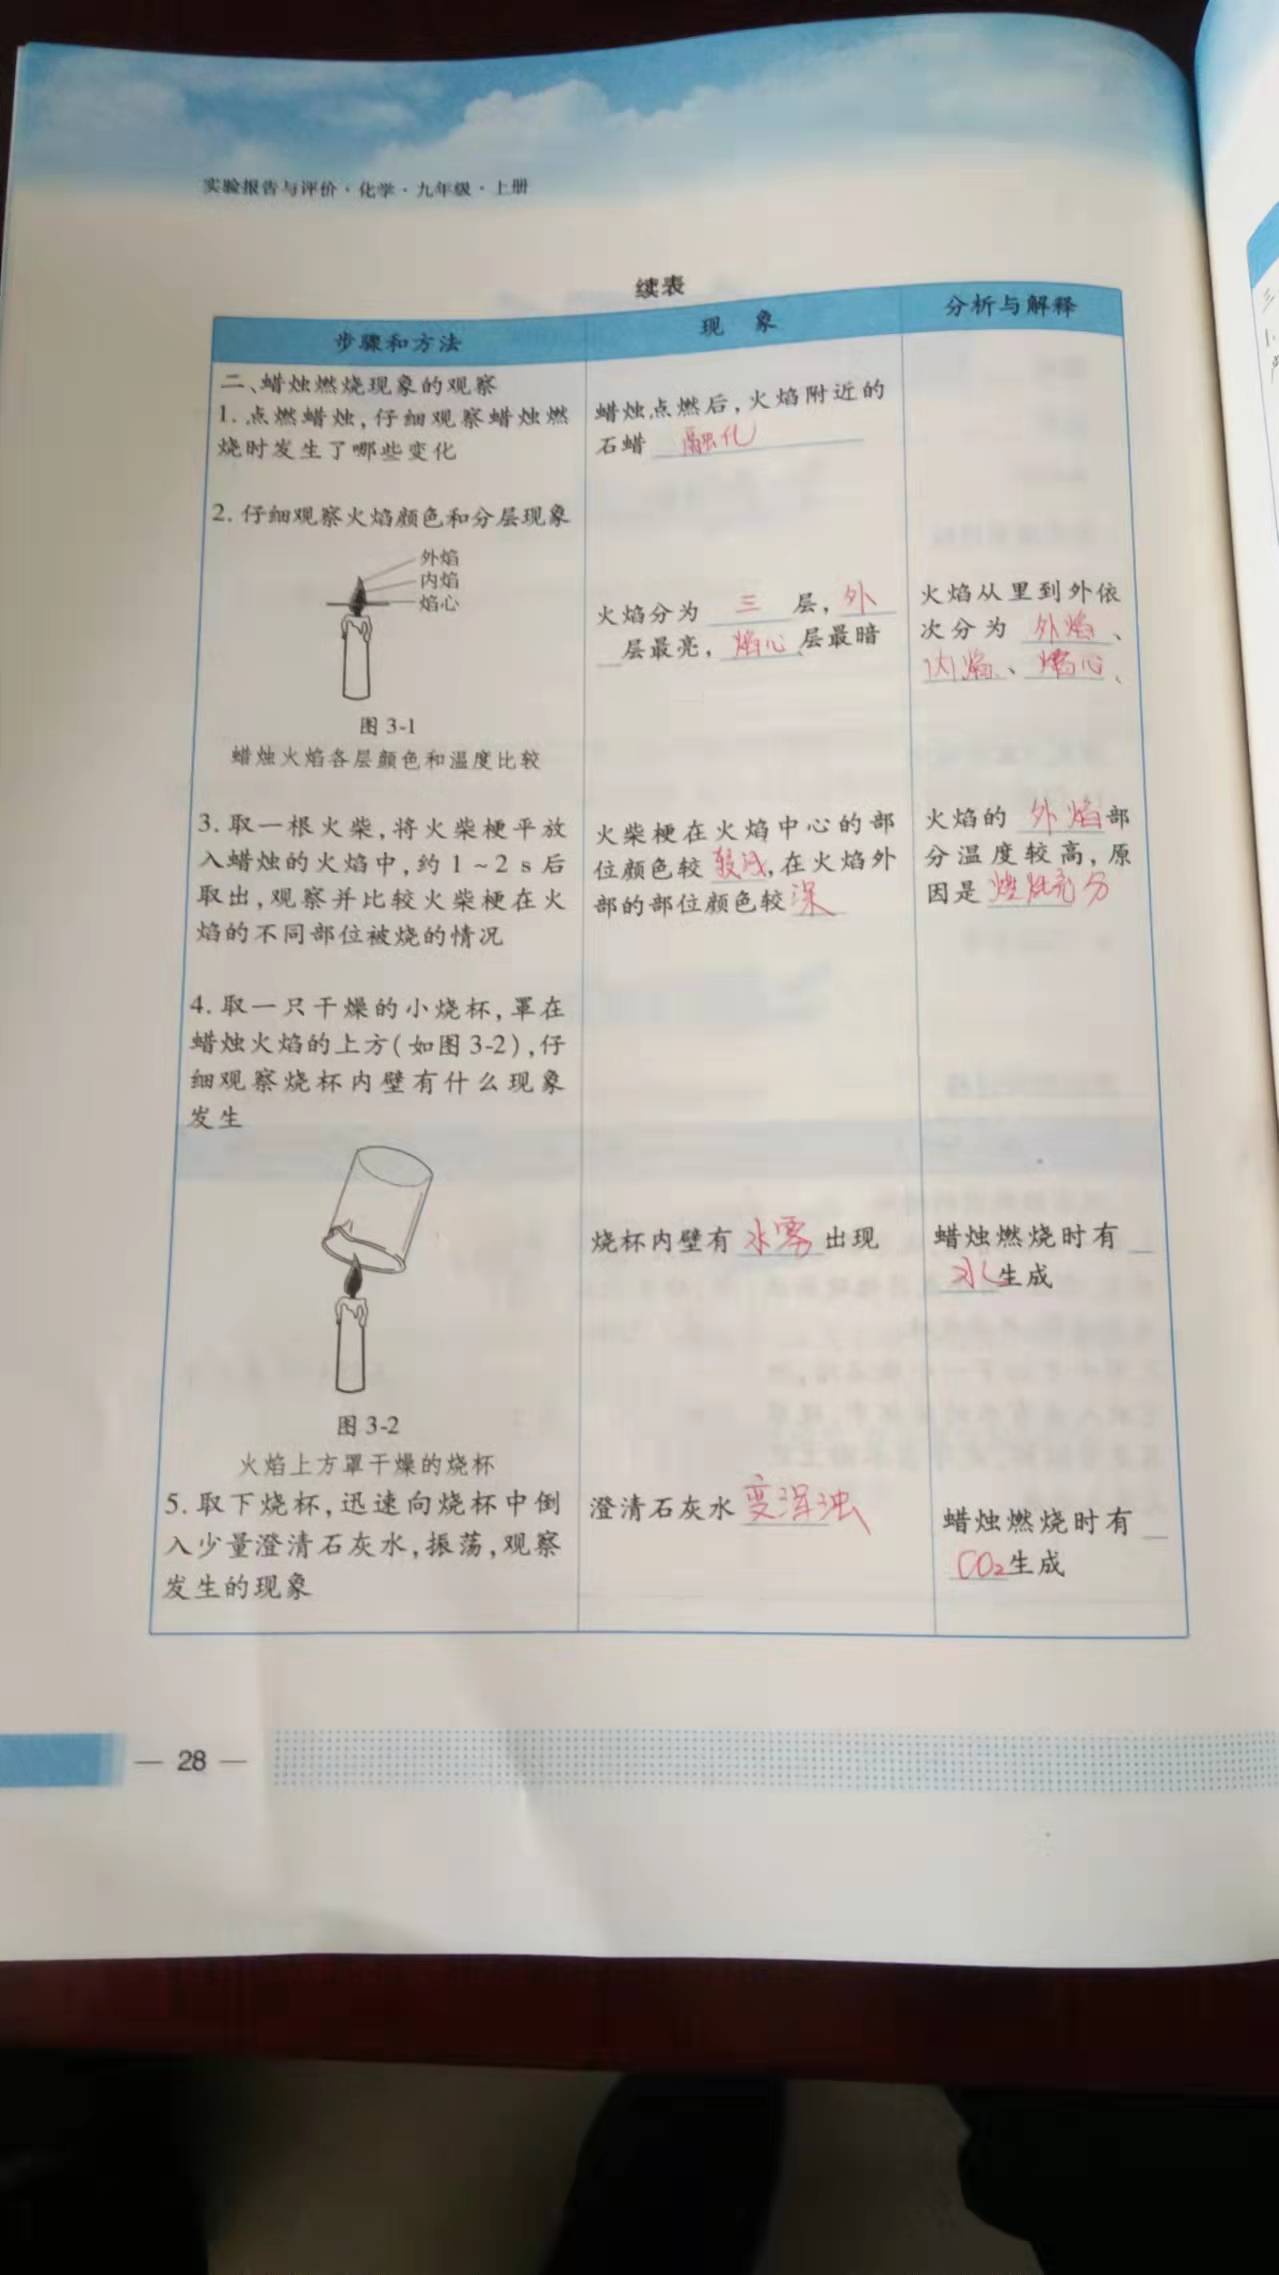 实验报告与评价·化学·九年级·上册
续表
步骤和方法
现 象
分析与解释
二、蜡烛燃烧现象的观察
1. 点燃蜡烛,仔细观察蜡烛燃
烧时发生了哪些变化
蜡烛点燃后,火焰附近的
石蜡 融化
2. 仔细观察火焰颜色和分层现象
外焰
内焰
焰心
图 3-1
蜡烛火焰各层颜色和温度比较
火焰分为 三 层, 外
层最亮, 焰心 层最暗
火焰从里到外依
次分为 外焰、
内焰、焰心、
3. 取一根火柴,将火柴梗平放
入蜡烛的火焰中,约 1 ~ 2 s 后
取出,观察并比较火柴梗在火
焰的不同部位被烧的情况
火柴梗在火焰中心的部
位颜色较 较浅,在火焰外
部的部位颜色较 深
火焰的 外焰 部
分温度较高,原
因是 燃烧充分
4. 取一只干燥的小烧杯,罩在
蜡烛火焰的上方(如图 3-2),仔
细观察烧杯内壁有什么现象
发生
图 3-2
火焰上方罩干燥的烧杯
烧杯内壁有 水雾 出现
蜡烛燃烧时有
水 生成
5. 取下烧杯,迅速向烧杯中倒
入少量澄清石灰水,振荡,观察
发生的现象
澄清石灰水 变浑浊
蜡烛燃烧时有
CO₂ 生成
— 28 —
三
1.